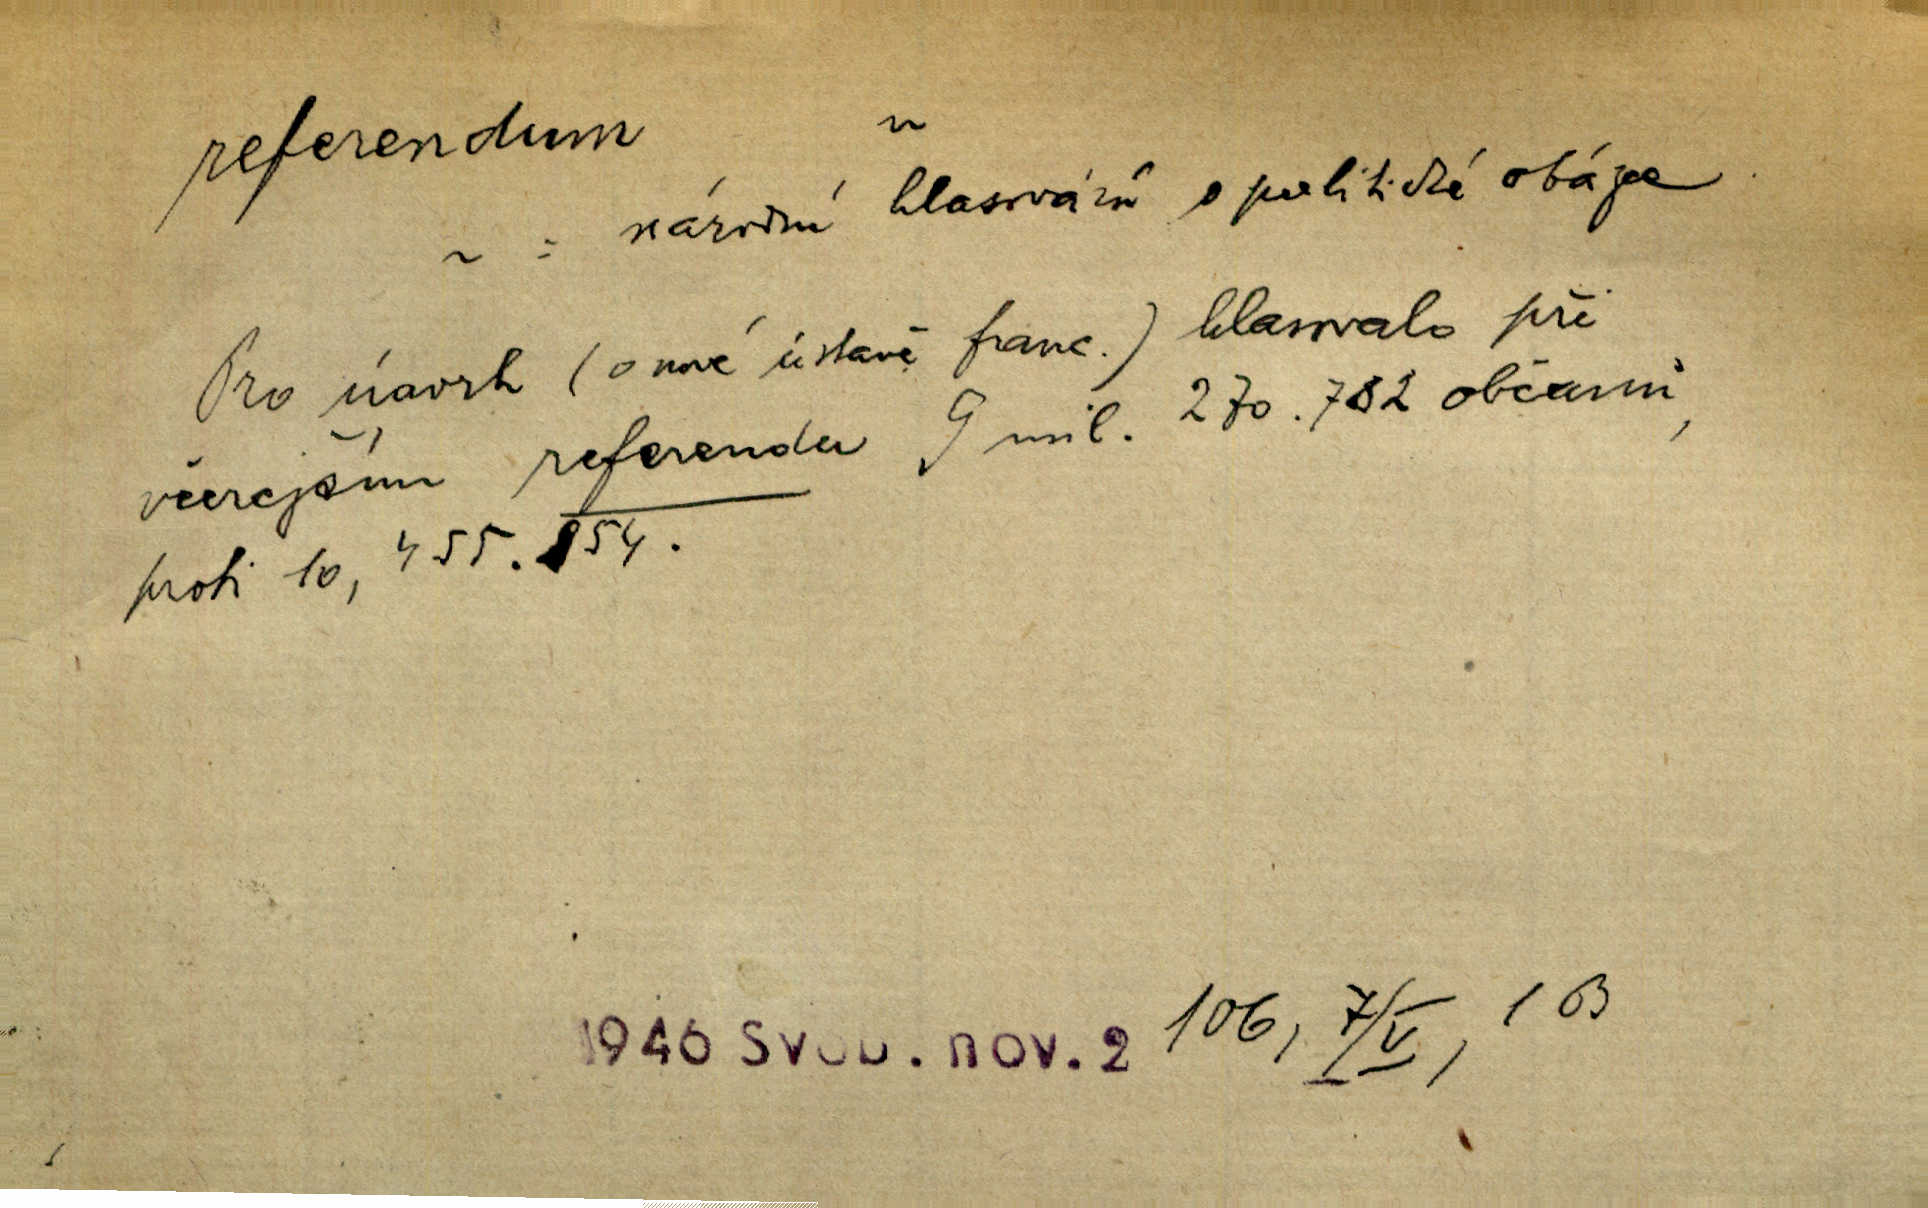 referendum n
~ = národní hlasování o politické otázce
Pro návrh (o nové ústavě franc.) hlasovalo při
včerejším referendu 9 mil. 270.782 občanů,
proti 10,455.854.
1946 Svob. nov. 2 106, 7/V, 1 B